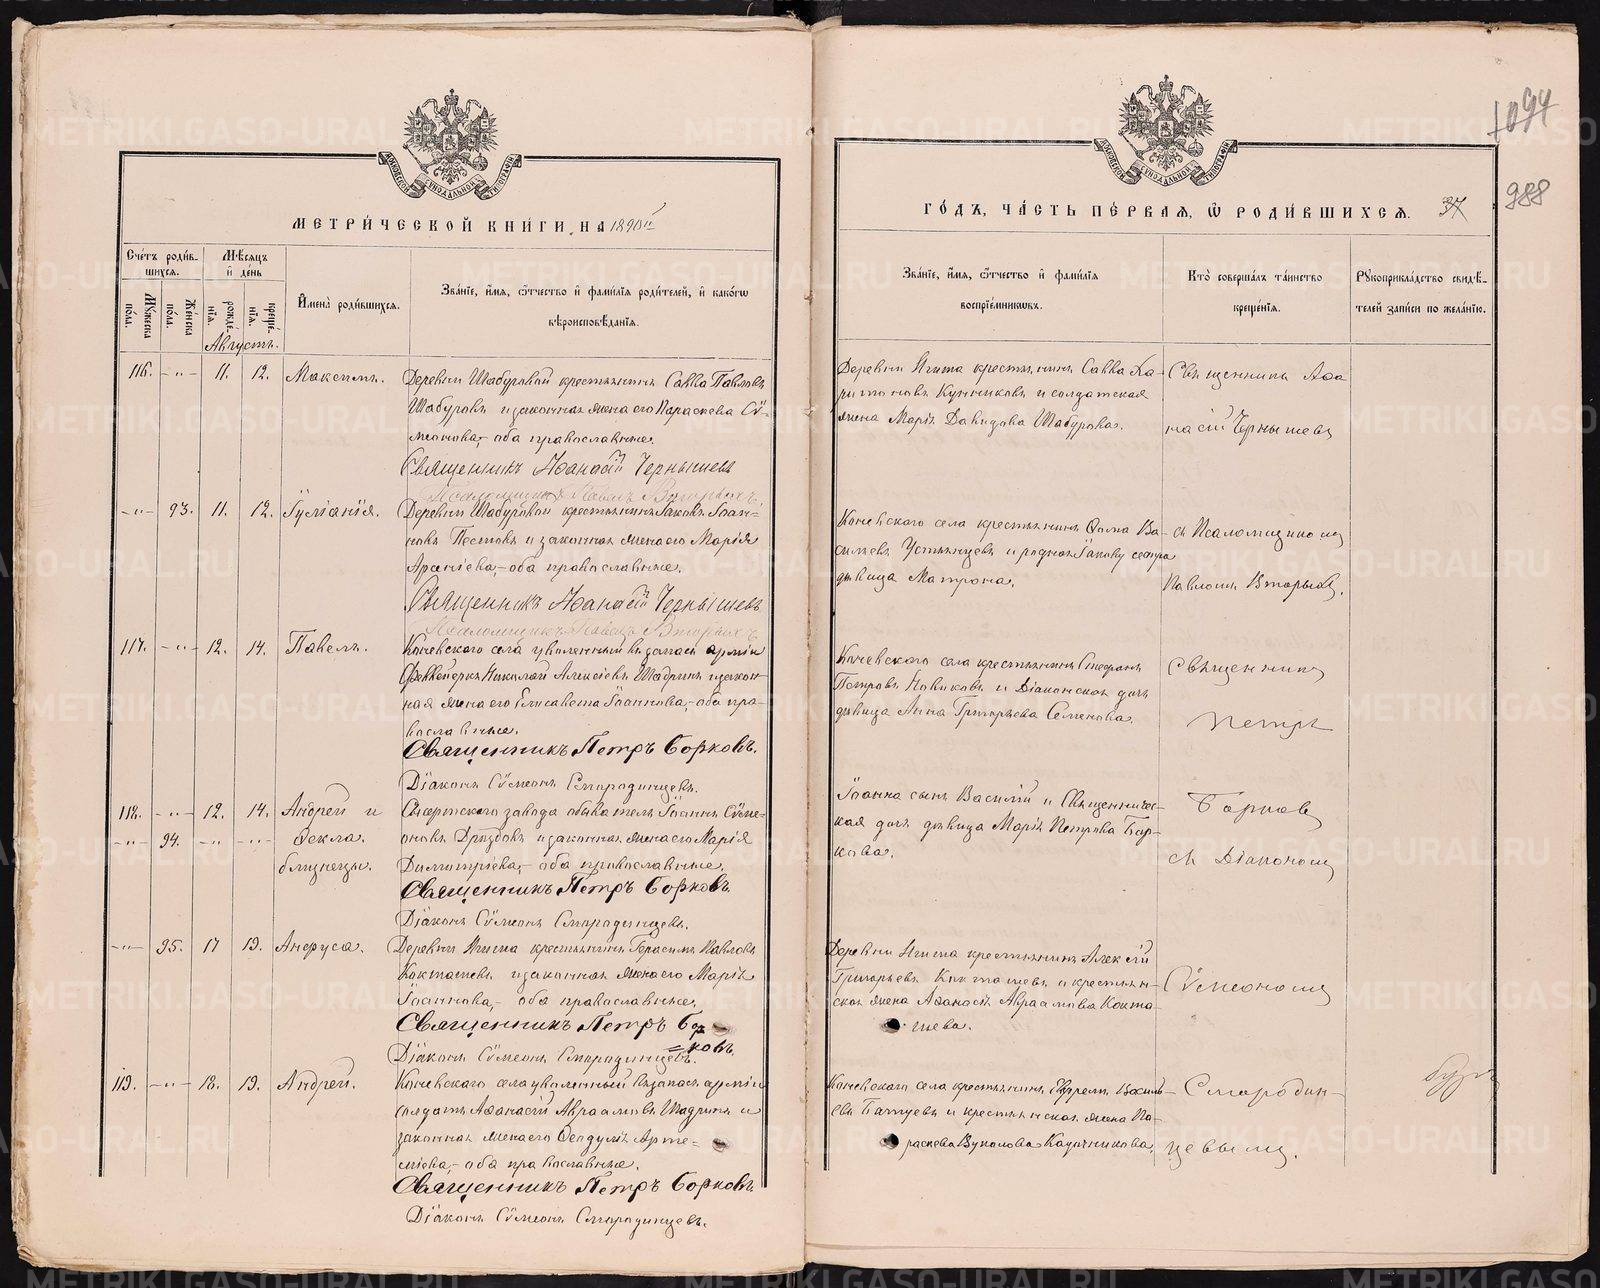 МЕТРИ́ЧЕСКОЙ КНИ́ГИ, НА 1890й
Сче́тъ роди́в-
шихся.
Мѣ́сяцъ
и҆ де́нь
Мꙋ́жеска
по́ла.
Же́нска
по́ла.
рожде́-
нїѧ.
креще́-
нїѧ.
И҆мена̀ роди́вшихся.
Зва́нїе, и҆́мѧ, ѻ҆́тчество и҆ фами́лїѧ роди́телей, и҆ како́гѡ
вѣроисповѣ́данїѧ.
Августъ.
116. - „ - 11. 12. Максимъ.
Деревни Шабуровой крестьянинъ Савва Павловъ
Шабуровъ и законная жена его Параскева Сѵ-
меонова,- оба православные.
Священникъ Аѳанасій Чернышевъ
Псаломщикъ Павелъ Вторыхъ
- „ - 93. 11. 12. Іуліанія.
Деревни Шабуровой крестьянинъ Іаковъ Іоан-
новъ Пестовъ и законная жена его Марія
Арсеніева,- оба православные.
Священникъ Аѳанасій Чернышевъ
Псаломщикъ Павелъ Вторыхъ
117. - „ - 12. 14. Павелъ.
Коневского села уволенный въ запасъ арміи
Фейервейеркъ Николай Алексіевъ Шадринъ и закон-
ная жена его Елисавета Іоаннова,- оба пра-
вославные.
Священникъ Петръ Борковъ.
Діаконъ Сѵмеонъ Смородинцевъ.
118. - „ - 12. 14. Андрей и
- „ - 94. - „ - - „ - Ѳекла.
близнецы.
Сысертского завода обыватель Іоаннъ Сѵме-
оновъ Дроздовъ и законная жена его Марія
Димитріева,- оба православные.
Священникъ Петръ Борковъ.
Діаконъ Сѵмеонъ Смородинцевъ.
- „ - 95. 17 19. Анфуса.
Деревни Ягиша крестьянинъ Герасимъ Павловъ
Кокташевъ и законная жена его Марія
Іоаннова,- оба православные.
Священникъ Петръ Бор
=ковъ.
Діаконъ Сѵмеонъ Смородинцевъ.
119. - „ - 18. 19. Андрей.
Коневского села уволенный въ запасъ арміи
солдатъ Аѳанасій Авраамовъ Шадринъ и
законная жена его Ѳеодулія Арте-
міева,- оба православные.
Священникъ Петръ Борковъ.
Діаконъ Сѵмеонъ Смородинцевъ.
ГО́ДЪ, ЧА́СТЬ ПЕ́РВАѦ, Ѡ҆ РОДИ́ВШИХСѦ.
37
1094
988
Зва́нїе, и҆́мѧ, ѻ҆́тчество и҆ фами́лїѧ
воспрїе́мникѡвъ.
Кто̀ соверша́лъ та́инство
креще́нїѧ.
Рꙋкоприкла́дство свидѣ́-
телей за́писи по жела́нїю.
Деревни Ягиша крестьянинъ Савва Ха-
ритоновъ Кунниковъ и солдатская
жена Марія Давидова Шабурова.
Священникъ Аѳа
насій Чернышевъ
Коневского села крестьянинъ Ѳома Ва-
сильевъ Устьянцевъ и родная Іакову сестра
дѣвица Матрона.
съ Псаломщикомъ
Павломъ Вторыхъ.
Коневского села крестьянинъ Стефанъ
Петровъ Новиковъ и Діаконская дочь
дѣвица Анна Григорьева Семенова.
Священникъ
Петръ
Іоанна сынъ Василій и Священничес-
кая дочь дѣвица Марія Петрова Бор-
кова.
Борков
съ Діакономъ
Деревни Ягиша крестьянинъ Алексѣй
Григорьевъ Кокташевъ и крестьян-
ская жена Аѳанасія Авраамова Кокта-
шева.
Сѵмеономъ
Коневского села крестьянинъ Ефремъ Василь-
евъ Батуевъ и крестьянская жена Па-
раскева Вуколова Казачникова.
Смородин-
цевымъ.